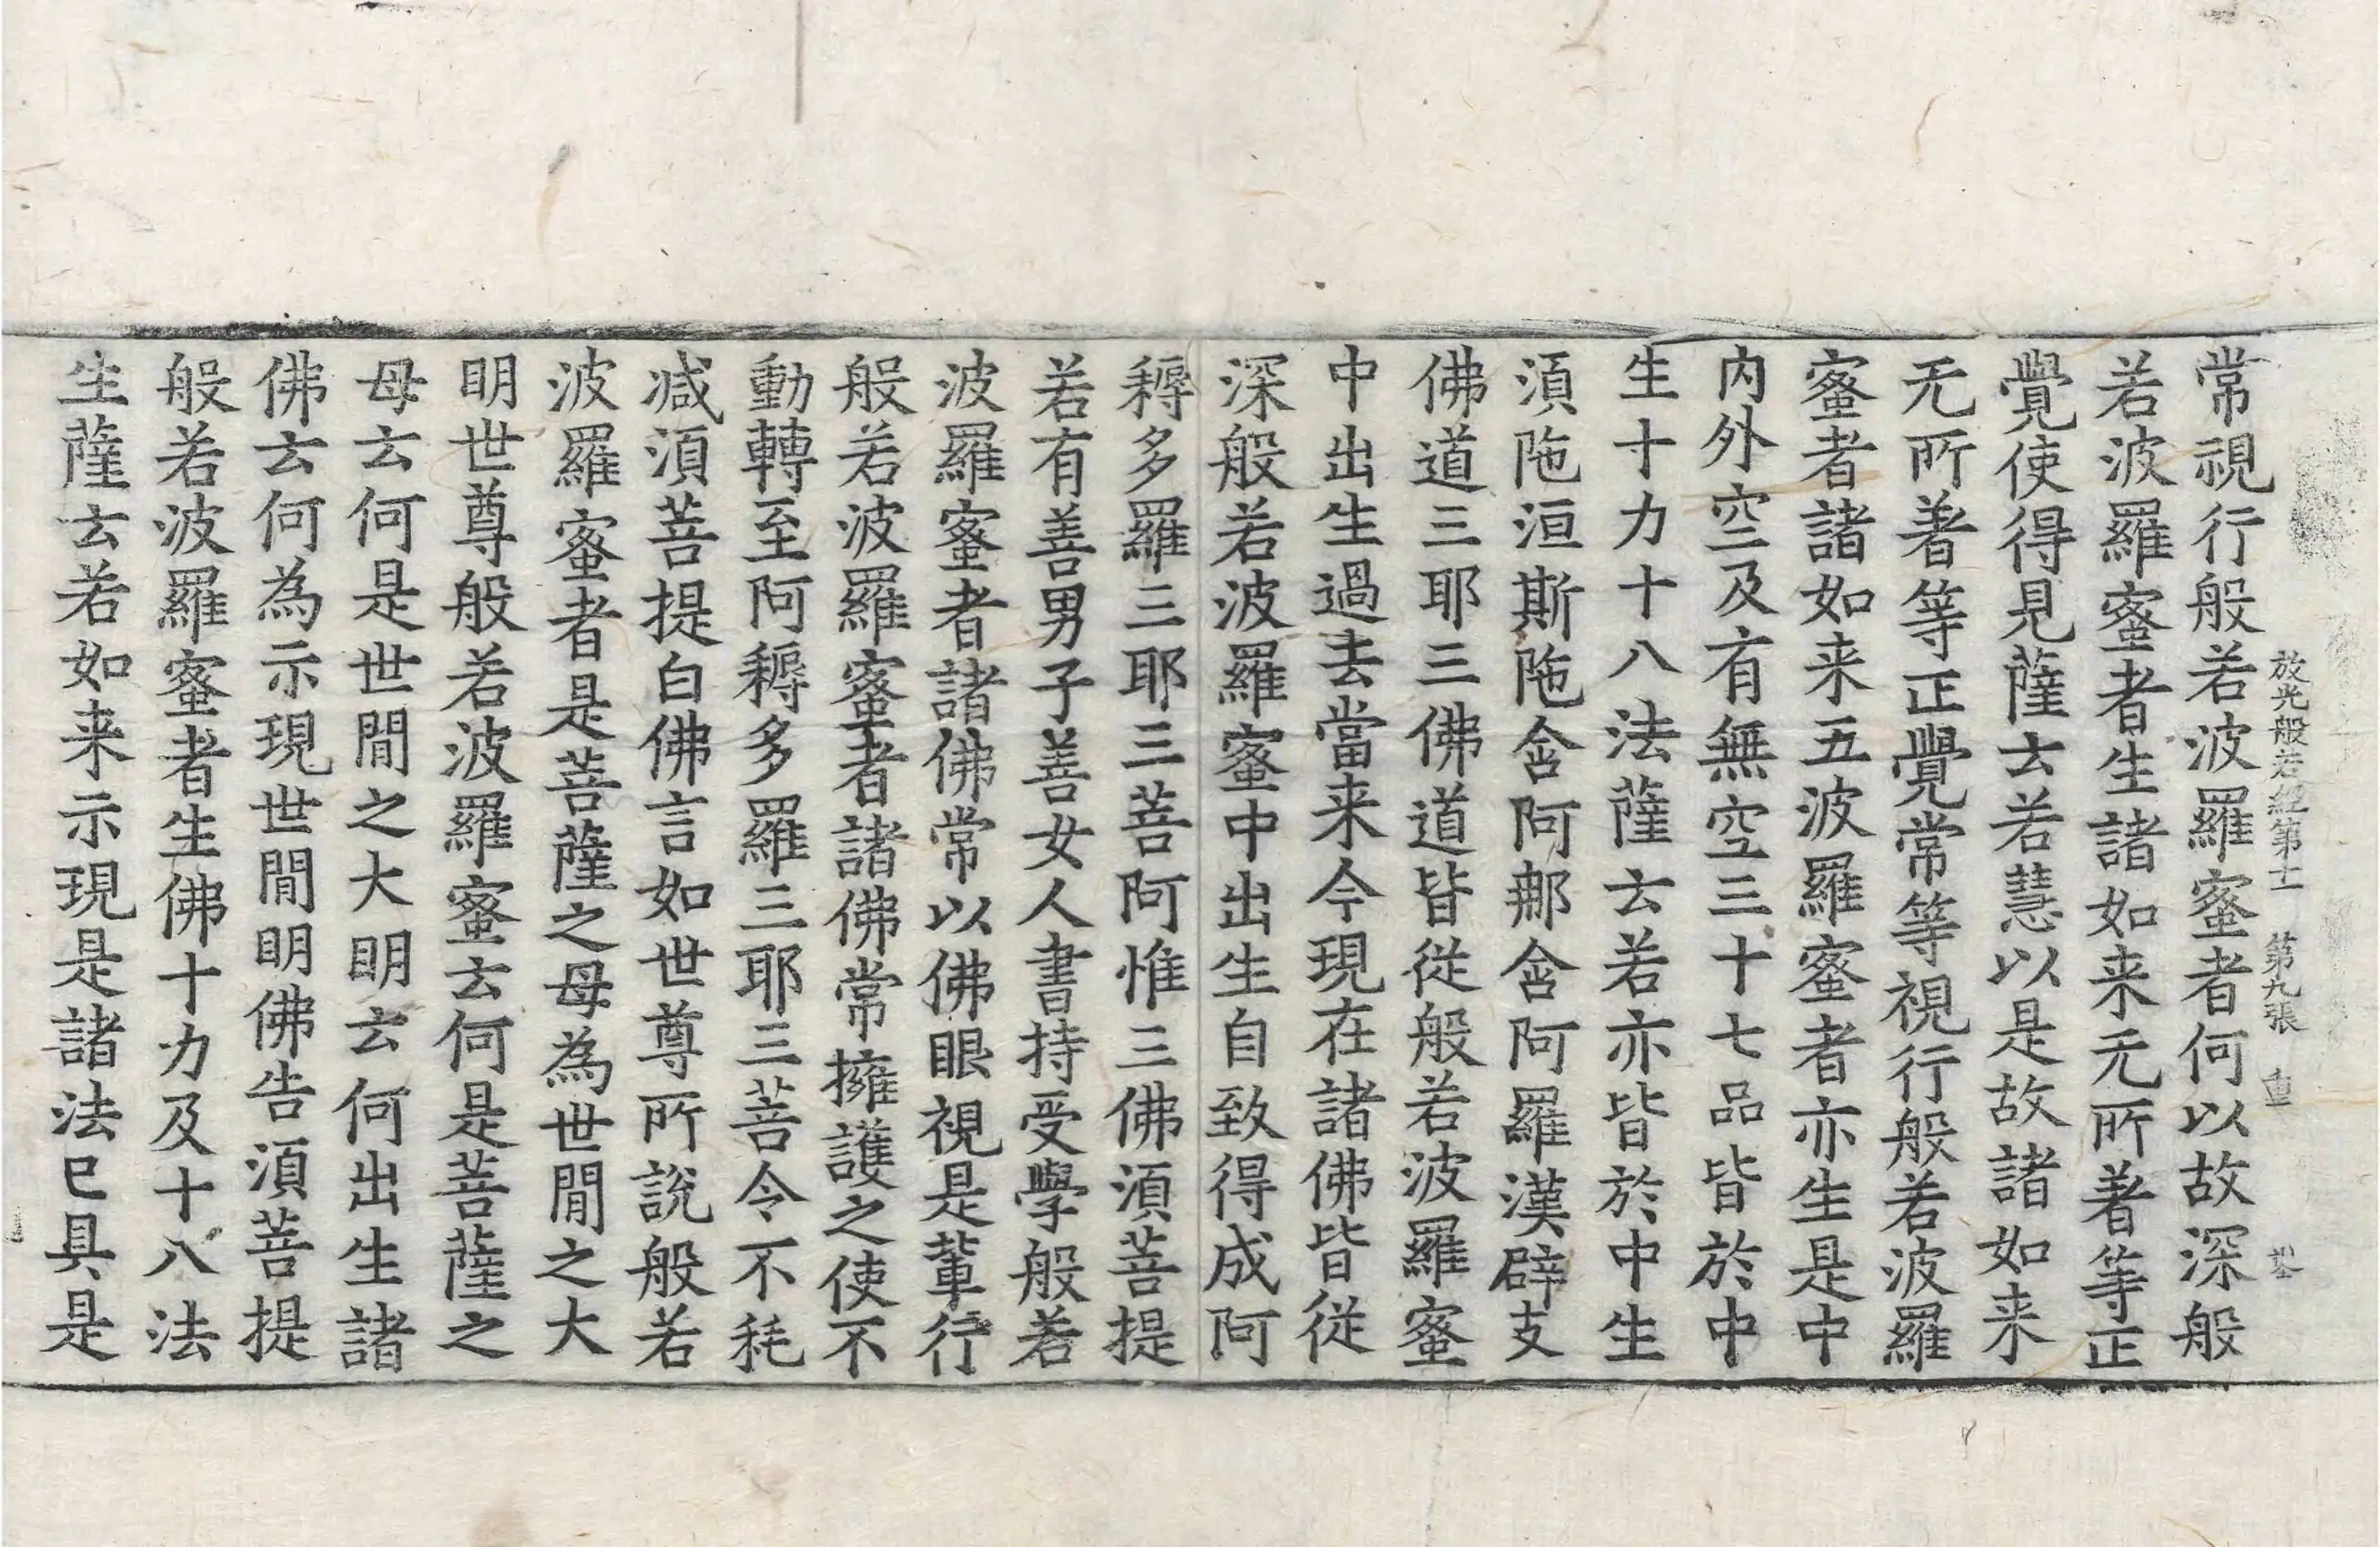 常視行般若波羅蜜者何以故深般
放光般若經第十一 第九張 重
若波羅蜜者生諸如来无所著等正
覺使得見薩云若慧以是故諸如来
无所著等正覺常等視行般若波羅
蜜者諸如来五波羅蜜者亦生是中
内外空及有無空三十七品皆於中
生十力十八法薩云若亦皆於中生
須陁洹斯陁含阿那含阿羅漢辟支
佛道三耶三佛道皆從般若波羅蜜
中出生過去當来今現在諸佛皆從
深般若波羅蜜中出生自致得成阿
耨多羅三耶三菩阿惟三佛須菩提
若有善男子善女人書持受學般若
波羅蜜者諸佛常以佛眼視是輩行
般若波羅蜜者諸佛常擁護之使不
動轉至阿耨多羅三耶三菩令不耗
减須菩提白佛言如世尊所說般若
波羅蜜者是菩薩之母為世間之大
明世尊般若波羅蜜云何是菩薩之
母云何是世間之大明云何出生諸
佛云何為示現世間明佛告須菩提
般若波羅蜜者生佛十力及十八法
生薩云若如来示現是諸法已具是